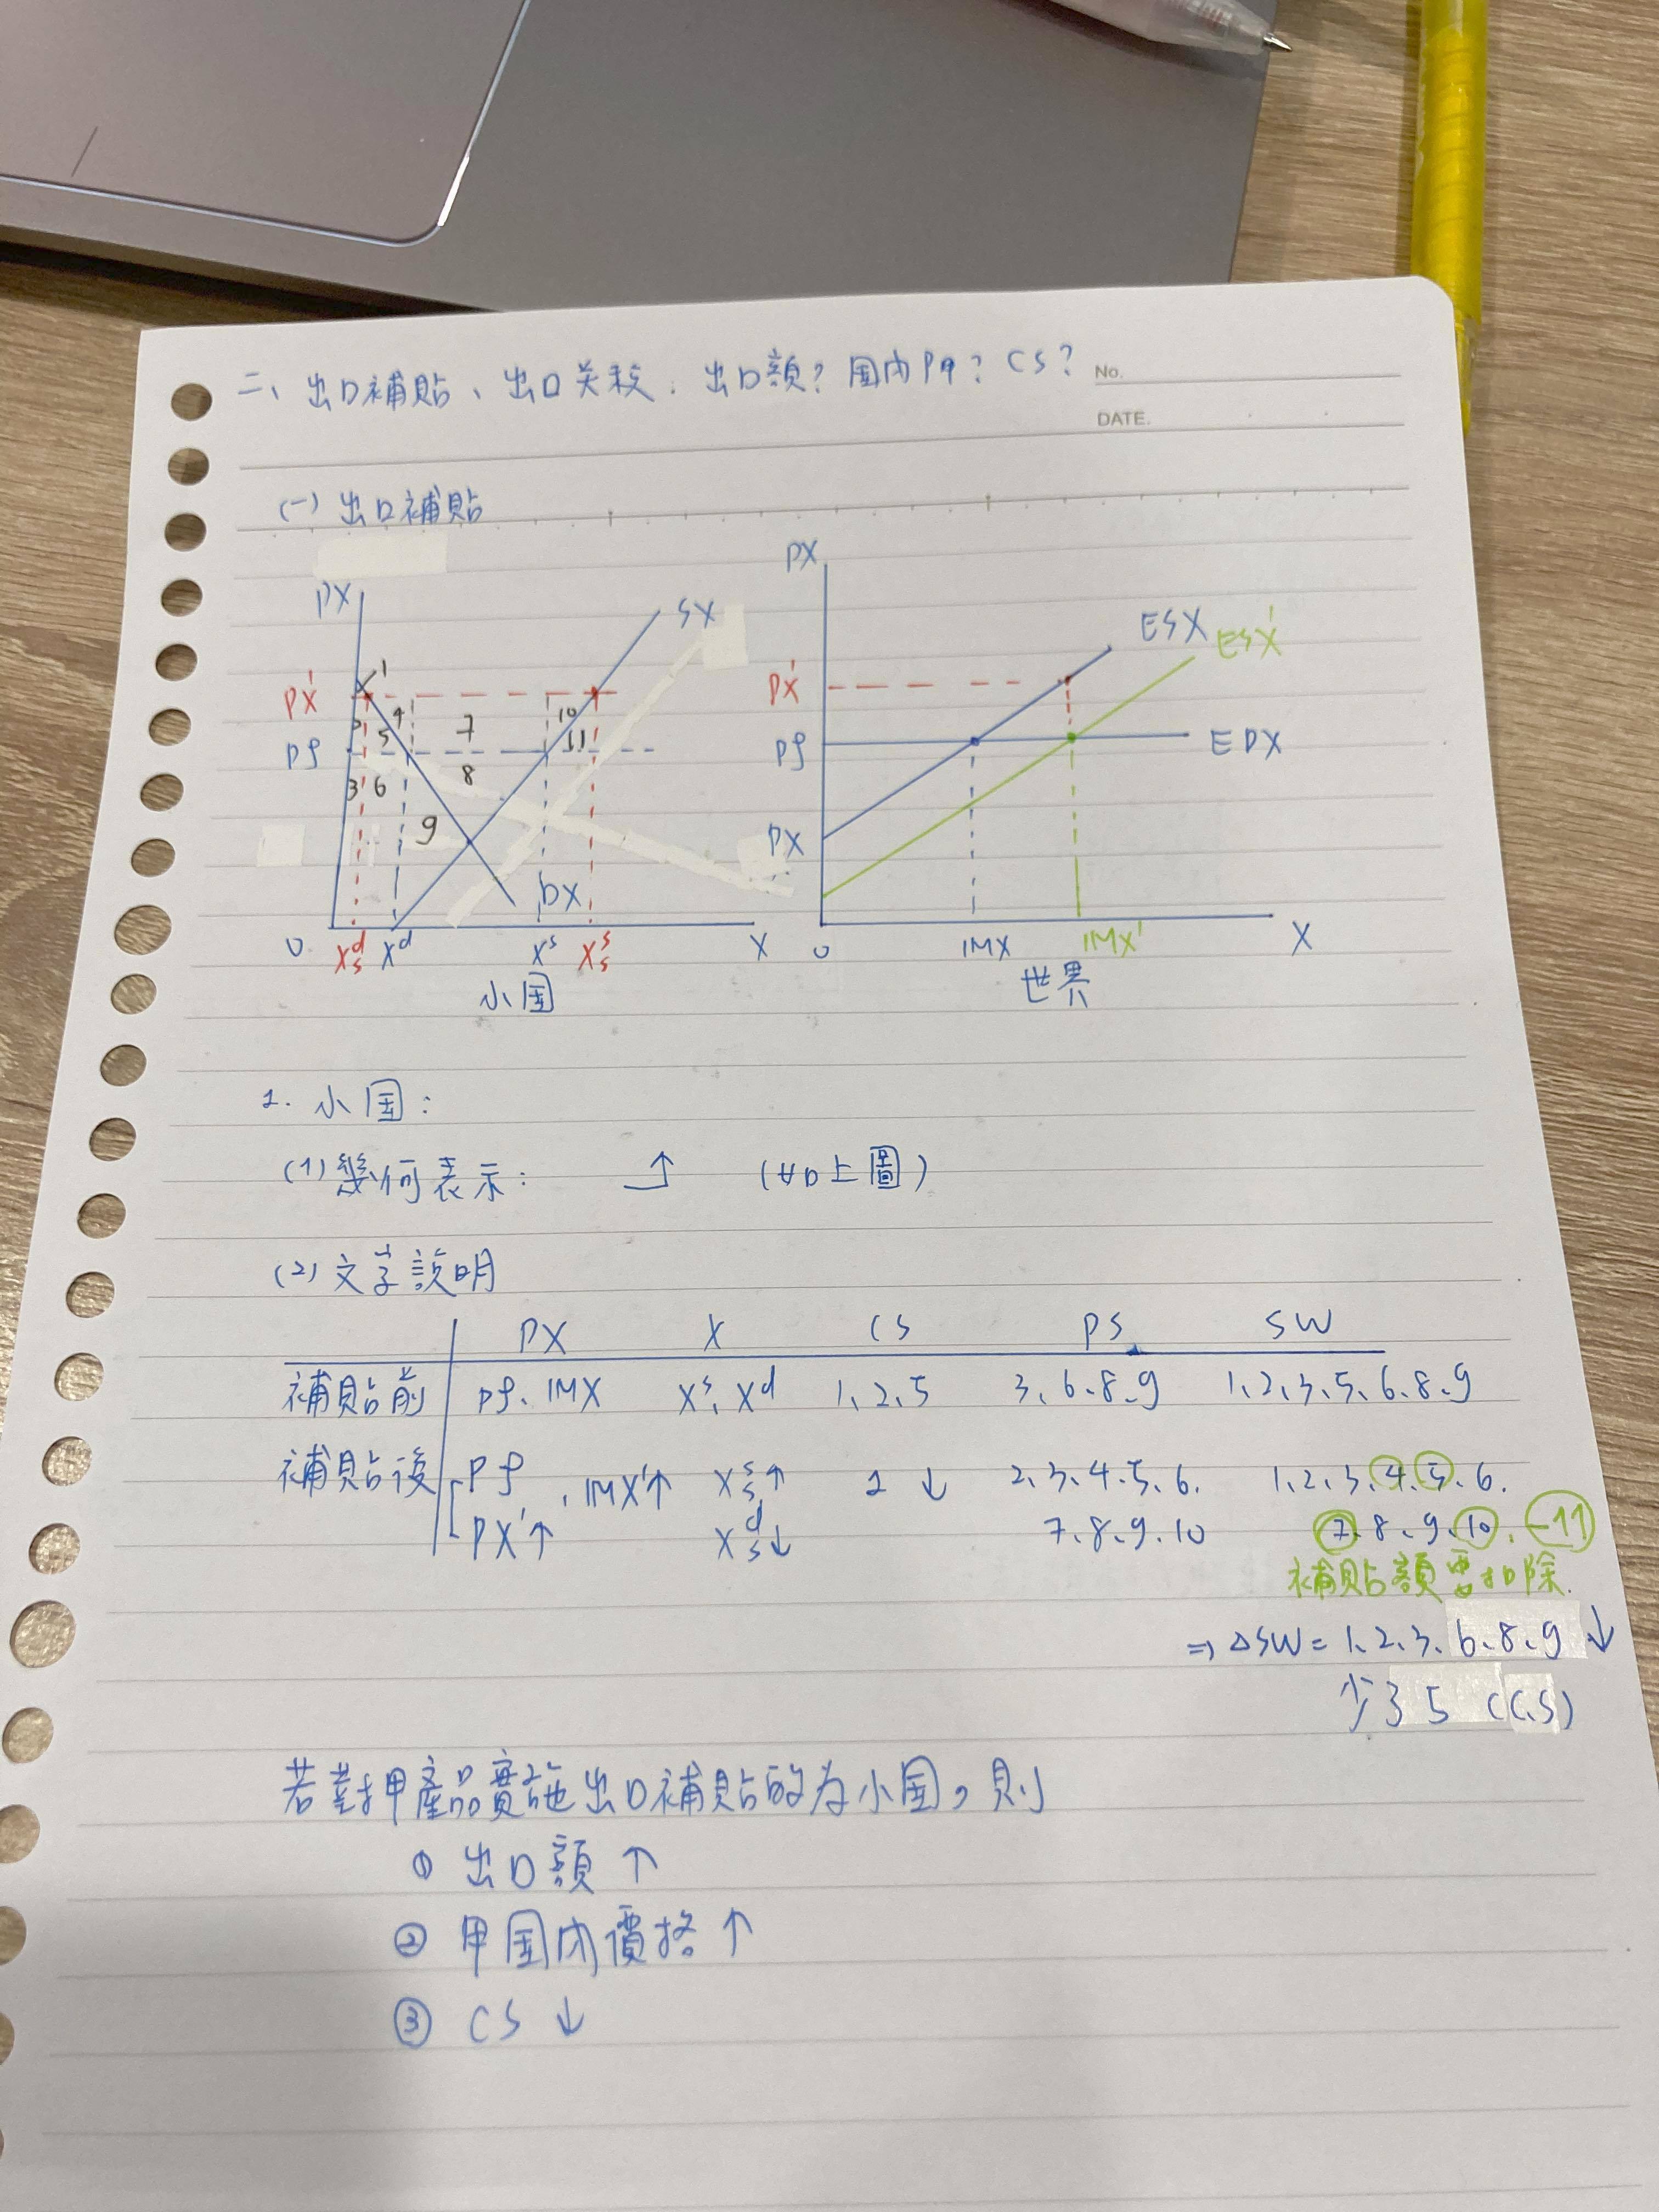 二、出口補貼、出口关税：出口額？国内P甲？CS？
No.
DATE.
(一) 出口補貼
PX
SX
PX'
Pf
1
2
4
5
7
10
11
3
6
8
9
DX
0
Xsd
Xd
Xs
Xss
X
小国
PX
ESX
ESX'
PX'
Pf
EDX
PX
0
IMX
IMX'
X
世界
1. 小国：
(1) 幾何表示：
(如上圖)
(2) 文字說明
PX X CS PS SW
補貼前 Pf、IMX Xs、Xd 1、2、5 3、6、8、9 1、2、3、5、6、8、9
補貼後 Pf 、IMX'↑ Xss↑ 1 ↓ 2、3、4、5、6、 1、2、3、4、5、6、
PX'↑ Xsd↓ 7、8、9、10 7、8、9、10、-11
補貼額要扣除
⇒ △SW = 1、2、3、6、8、9 ↓
少了 5 (CS)
若對甲產品實施出口補貼的為小国，則
① 出口額 ↑
② 甲国内價格 ↑
③ CS ↓